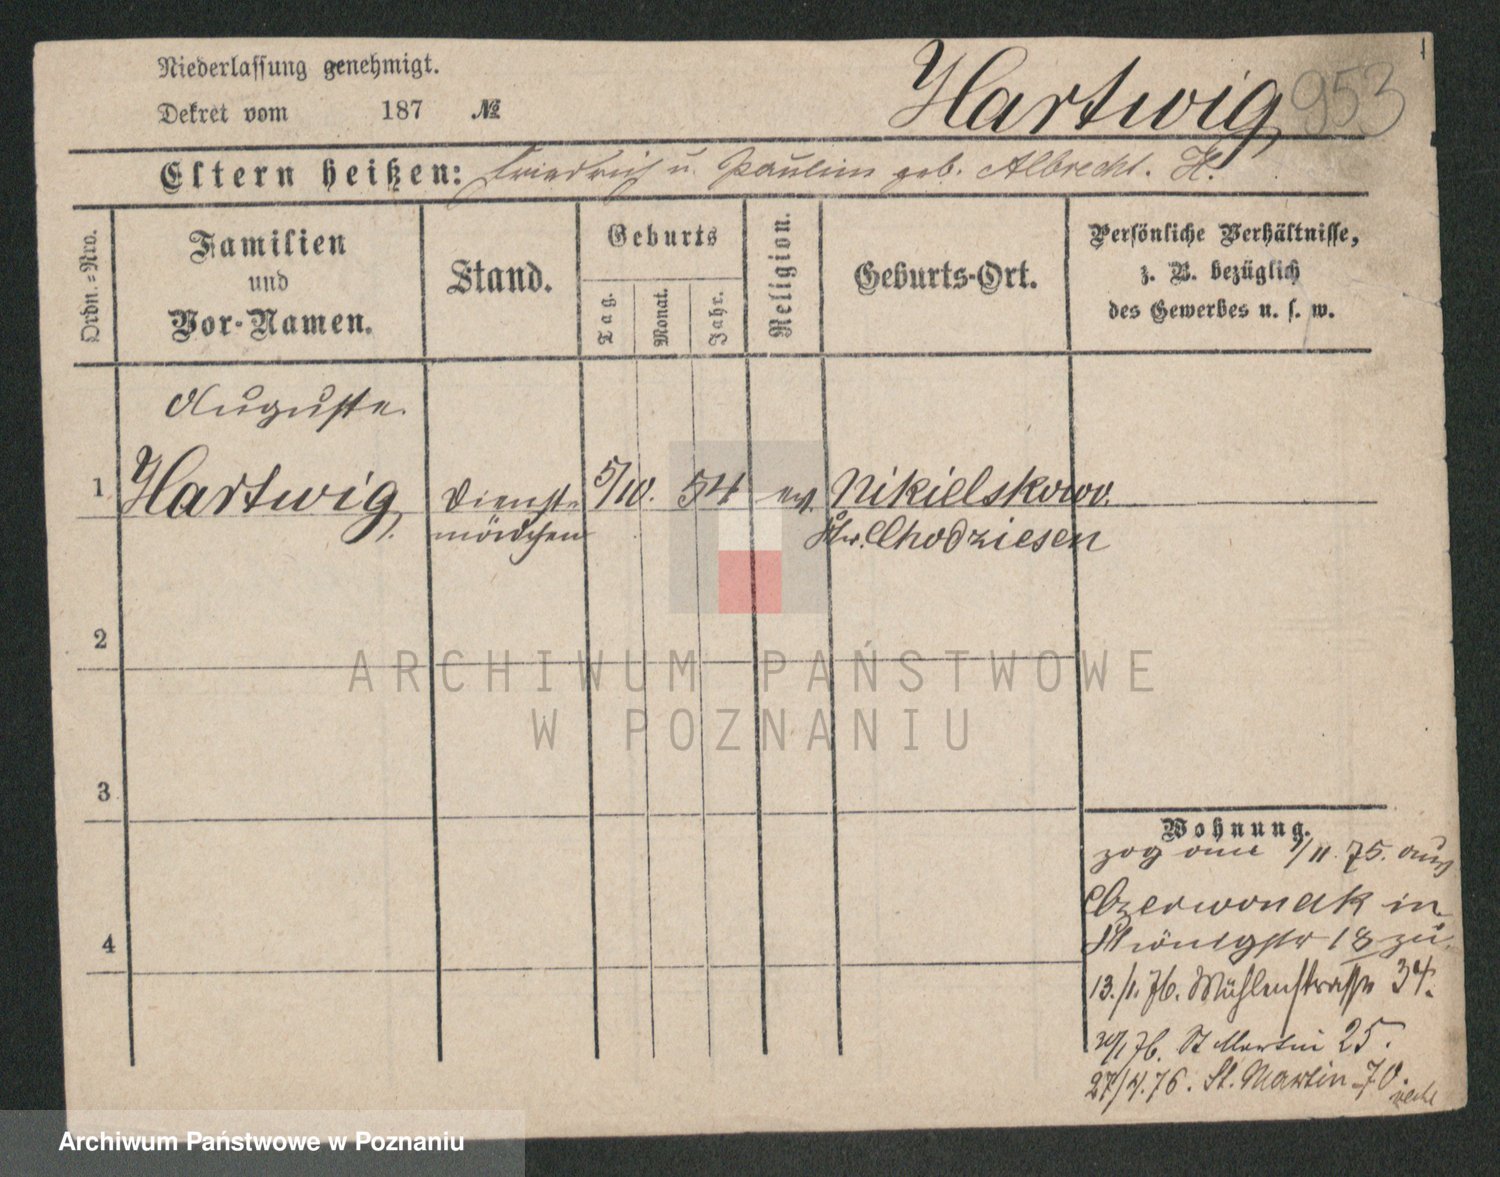 Niederlassung genehmigt.
Dekret vom 187 №
Hartwig
953
Eltern heißen: Friedrich u. Paulin geb. Albrecht. H.
Ordn.-Nro.
Familien
und
Vor-Namen.
Stand.
Geburts
Tag.
Monat.
Jahr.
Religion.
Geburts-Ort.
Persönliche Verhältnisse,
z. B. bezüglich
des Gewerbes u. s. w.
Auguste
1 Hartwig Dienst- 5/10. 54 ev. Nikielskowo.
mädchen Kr. Chodziesen
2
3
4
Wohnung.
zog am 1/11. 75. aus
Czerwonak in
Königstr 18 zu.
13./1. 76. Mühlenstrasse 34.
76. St Martin 25.
27/4.76. St. Martin 70.
ARCHIWUM PAŃSTWOWE
W POZNANIU
Archiwum Państwowe w Poznaniu